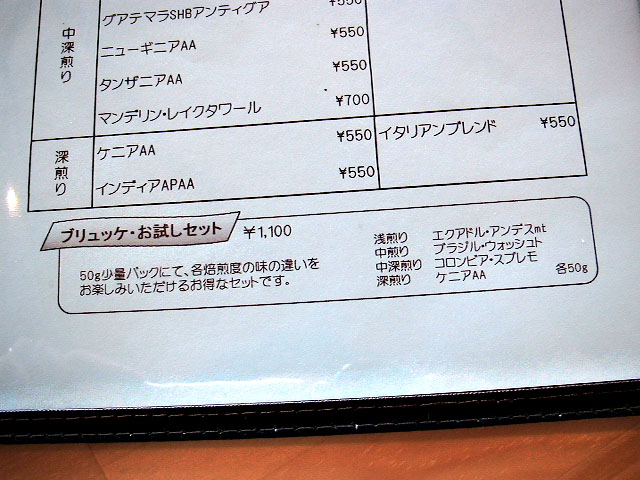 中深煎り
グアテマラSHBアンティグア ¥550
ニューギニアAA ¥550
タンザニアAA ¥550
マンデリン・レイクタワール ¥700
深煎り
ケニアAA ¥550
イタリアンブレンド ¥550
インディアAPAA ¥550
ブリュッケ・お試しセット ¥1,100
50g少量パックにて、各焙煎度の味の違いを
お楽しみいただけるお得なセットです。
浅煎り エクアドル・アンデスmt
中煎り ブラジル・ウォッシュト
中深煎り コロンビア・スプレモ
深煎り ケニアAA 各50g